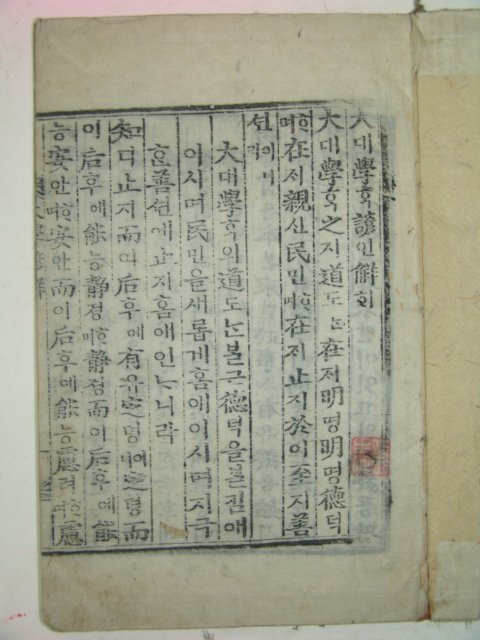 大대學학諺언解ᄒᆡ
大대學학之지道도ᄂᆞᆫ在ᄌᆡ明명明명德덕
ᄒᆞ며在ᄌᆡ親신民민ᄒᆞ며在ᄌᆡ止지於어至지善
션이니라
大대學학의道도ᄂᆞᆫᄇᆞᆯ근德덕을ᄇᆞᆯ킴애
이시며民민을새롭게홈애이시며지극
ᄒᆞᆫ善션에止지홈애인ᄂᆞ니라
知디止지而이后후에有유定뎡이니定뎡而
이后후에能능靜졍ᄒᆞ며靜졍而이后후에能
능安안ᄒᆞ며安안而이后후에能능慮려ᄒᆞ며慮